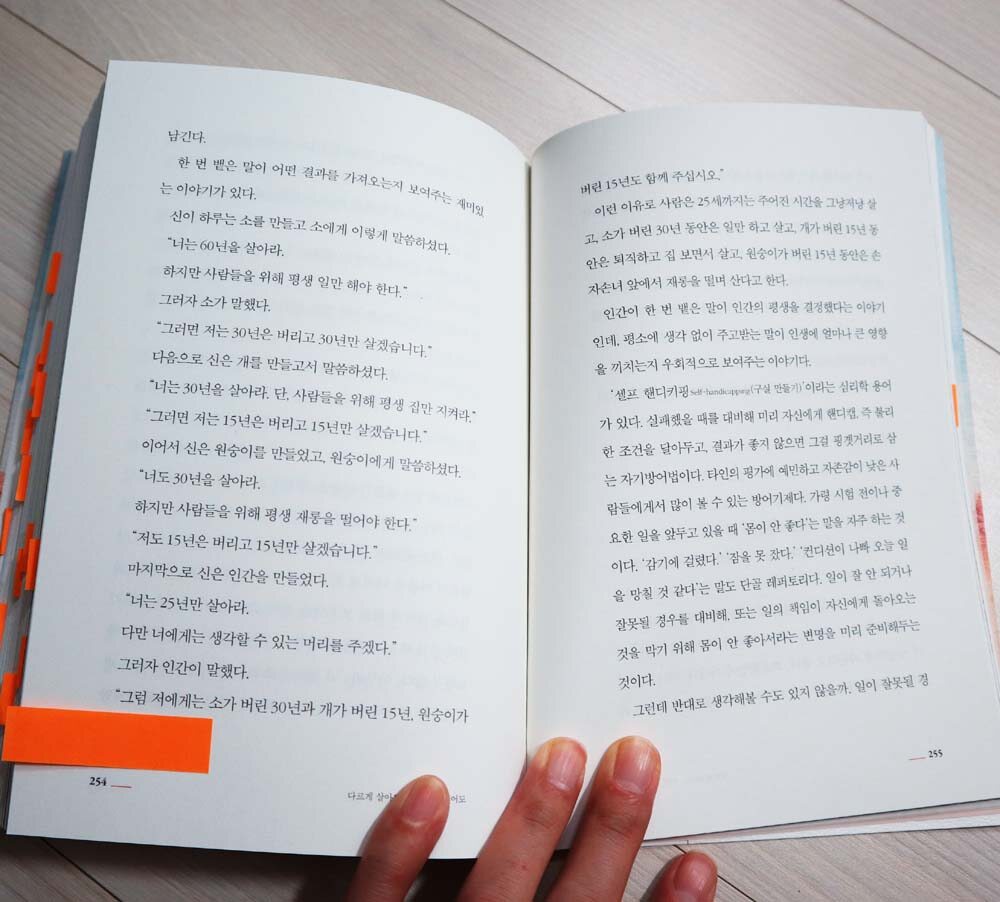 남긴다.
한 번 뱉은 말이 어떤 결과를 가져오는지 보여주는 재미있
는 이야기가 있다.
신이 하루는 소를 만들고 소에게 이렇게 말씀하셨다.
“너는 60년을 살아라.
하지만 사람들을 위해 평생 일만 해야 한다.”
그러자 소가 말했다.
“그러면 저는 30년은 버리고 30년만 살겠습니다.”
다음으로 신은 개를 만들고서 말씀하셨다.
“너는 30년을 살아라. 단, 사람들을 위해 평생 집만 지켜라.”
“그러면 저는 15년은 버리고 15년만 살겠습니다.”
이어서 신은 원숭이를 만들었고, 원숭이에게 말씀하셨다.
“너도 30년을 살아라.
하지만 사람들을 위해 평생 재롱을 떨어야 한다.”
“저도 15년은 버리고 15년만 살겠습니다.”
마지막으로 신은 인간을 만들었다.
“너는 25년만 살아라.
다만 너에게는 생각할 수 있는 머리를 주겠다.”
그러자 인간이 말했다.
“그럼 저에게는 소가 버린 30년과 개가 버린 15년, 원숭이가
254
다르게 어도
버린 15년도 함께 주십시오.”
이런 이유로 사람은 25세까지는 주어진 시간을 그냥저냥 살
고, 소가 버린 30년 동안은 일만 하고 살고, 개가 버린 15년 동
안은 퇴직하고 집 보면서 살고, 원숭이가 버린 15년 동안은 손
자손녀 앞에서 재롱을 떨며 산다고 한다.
인간이 한 번 뱉은 말이 인간의 평생을 결정했다는 이야기
인데, 평소에 생각 없이 주고받는 말이 인생에 얼마나 큰 영향
을 끼치는지 우회적으로 보여주는 이야기다.
‘셀프 핸디키핑Self-handicapping(구실 만들기)’이라는 심리학 용어
가 있다. 실패했을 때를 대비해 미리 자신에게 핸디캡, 즉 불리
한 조건을 달아두고, 결과가 좋지 않으면 그걸 핑곗거리로 삼
는 자기방어법이다. 타인의 평가에 예민하고 자존감이 낮은 사
람들에게서 많이 볼 수 있는 방어기제다. 가령 시험 전이나 중
요한 일을 앞두고 있을 때 ‘몸이 안 좋다’는 말을 자주 하는 것
이다. ‘감기에 걸렸다.’ ‘잠을 못 잤다.’ ‘컨디션이 나빠 오늘 일
을 망칠 것 같다’는 말도 단골 레퍼토리다. 일이 잘 안 되거나
잘못될 경우를 대비해, 또는 일의 책임이 자신에게 돌아오는
것을 막기 위해 몸이 안 좋아서라는 변명을 미리 준비해두는
것이다.
그런데 반대로 생각해볼 수도 있지 않을까. 일이 잘못될 경
255